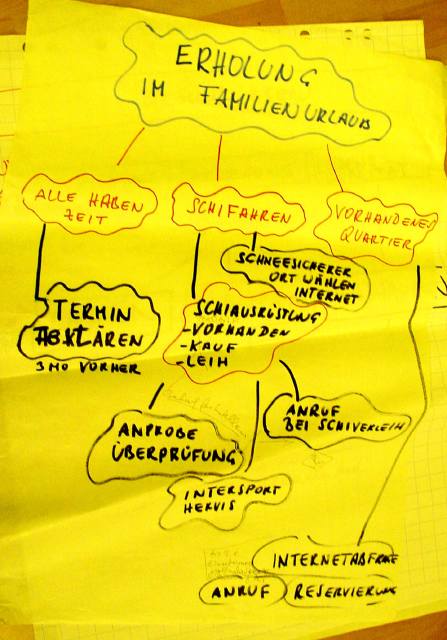 ERHOLUNG
IM FAMILIENURLAUB
ALLE HABEN
ZEIT
SCHIFAHREN
VORHANDENES
QUARTIER
SCHNEESICHERER
ORT WÄHLEN
INTERNET
TERMIN
ABKLÄREN
3 MO VORHER
SCHIAUSRÜSTUNG
-VORHANDEN
-KAUF
-LEIH
ANPROBE
ÜBERPRÜFUNG
ANRUF
BEI SCHIVERLEIH
INTERSPORT
HERVIS
INTERNETABFRAGE
ANRUF
RESERVIERUNG